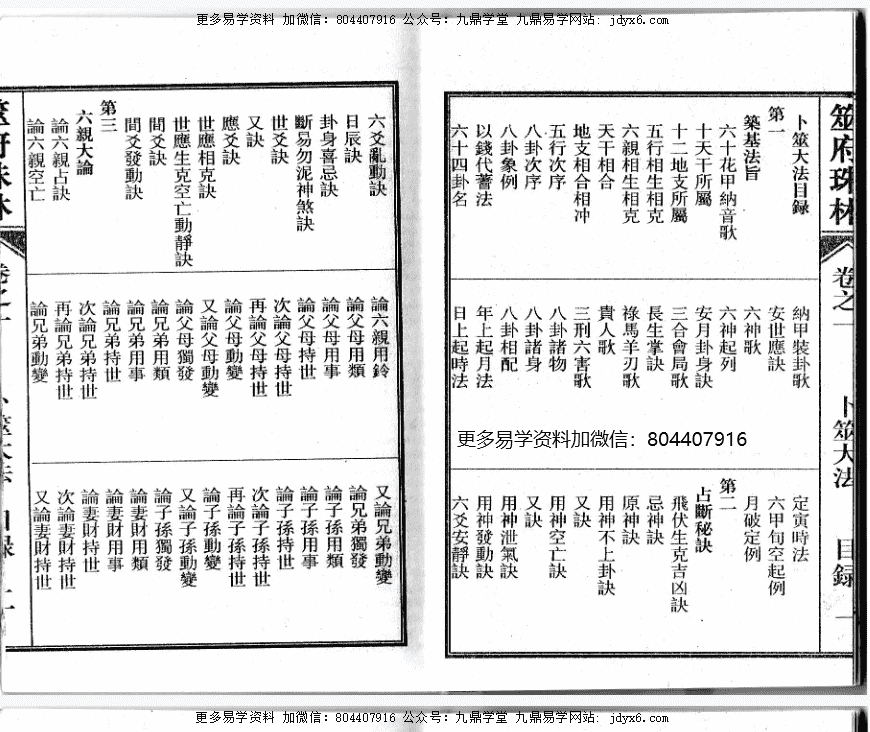 更多易学资料 加微信：804407916 公众号：九鼎学堂 九鼎易学网站：jdyx6.com
筮府珠林
卷之一
卜筮大法
目録
一
卜筮大法目録
第一
築基法旨
六十花甲納音歌
十天干所屬
十二地支所屬
五行相生相克
六親相生相克
天干相合
地支相合相冲
五行次序
八卦次序
八卦象例
以錢代蓍法
六十四卦名
納甲裝卦歌
安世應訣
六神歌
六神起列
安月卦身訣
三合會局歌
長生掌訣
祿馬羊刃歌
貴人歌
三刑六害歌
八卦諸物
八卦諸身
八卦相配
年上起月法
日上起時法
更多易学资料加微信：804407916
定寅時法
六甲旬空起例
月破定例
第二
占斷秘訣
飛伏生克吉凶訣
忌神訣
原神訣
用神不上卦訣
又訣
用神空亡訣
又訣
用神泄氣訣
用神發動訣
六爻安靜訣
六爻亂動訣
日辰訣
卦身喜忌訣
斷易勿泥神煞訣
世爻訣
又訣
應爻訣
世應相克訣
世應生克空亡動靜訣
間爻訣
間爻發動訣
第三
六親大論
論六親占訣
論六親空亡
論六親用鈐
論父母用類
論父母用事
論父母持世
次論父母持世
再論父母持世
論父母動變
又論父母動變
論父母獨發
論兄弟用類
論兄弟用事
論兄弟持世
次論兄弟持世
再論兄弟持世
論兄弟動變
又論兄弟動變
論兄弟獨發
論子孫用類
論子孫用事
論子孫持世
次論子孫持世
再論子孫持世
論子孫動變
又論子孫動變
論子孫獨發
論妻財用類
論妻財用事
論妻財持世
次論妻財持世
又論妻財持世
更多易学资料 加微信：804407916 公众号：九鼎学堂 九鼎易学网站：jdyx6.com